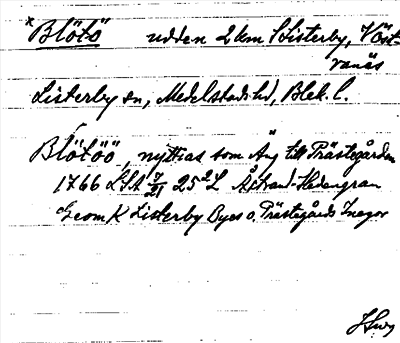 *Blötö udden 2 km S Listerby, V Öst-
ranäs
Listerby sn, Medelstads hd, Blek. l.
Blötöö, nyttias som Äng till Prästegården
1766 LSA 7/21 25²L Åstrand-Hedengran
Geom K Listerby Byes o. Prästegårds Inegor